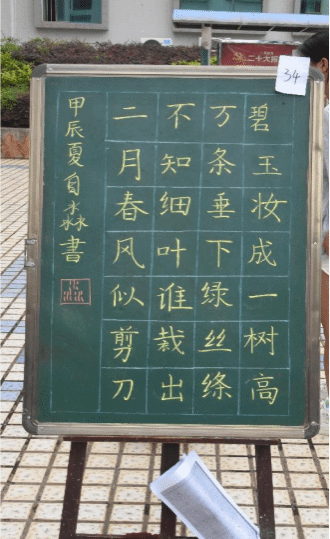 34
碧玉妆成一树高
万条垂下绿丝绦
不知细叶谁裁出
二月春风似剪刀
甲辰夏自淼書
二十大